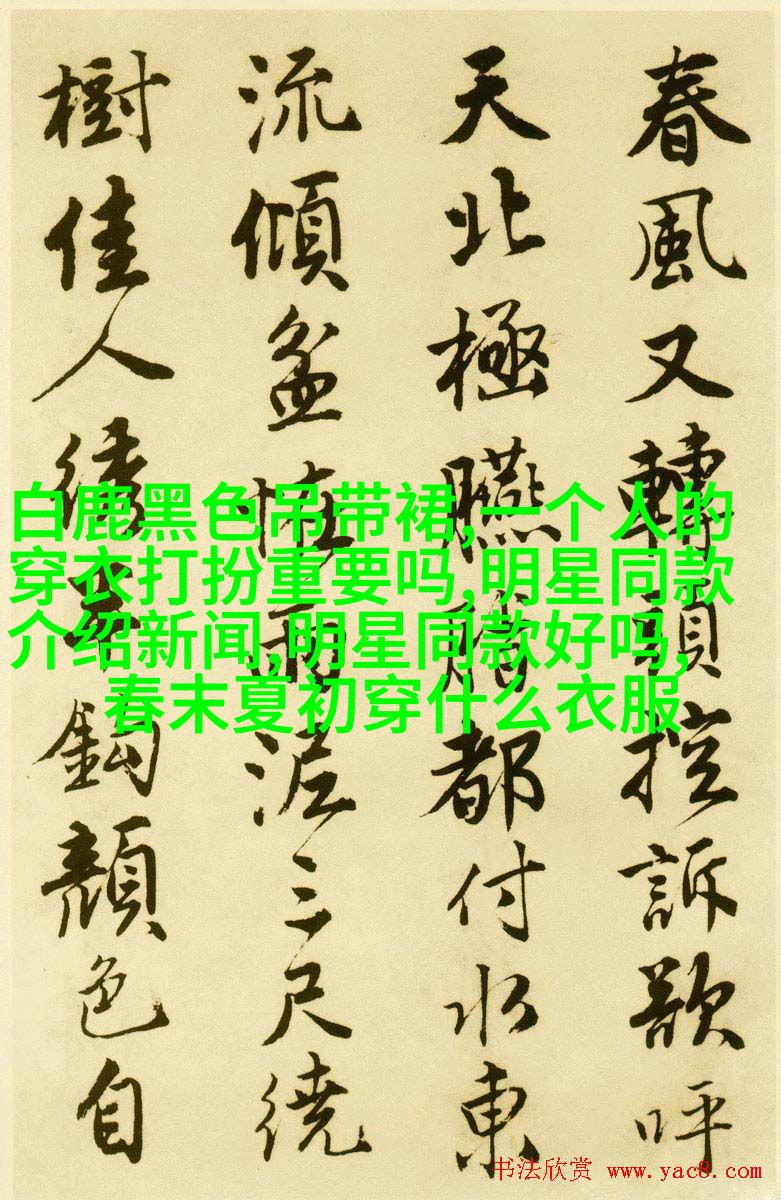 春風又轉頭控訴歌呼
天北極臙脂都付水東
流傾盆怪雨泥三尺繞
樹佳人繡鈎顏色自
白鹿黑色吊带裙,一个人的
穿衣打扮重要吗,明星同款
介绍新闻,明星同款好吗,
春末夏初穿什么衣服
书法欣赏 www.yac8.com